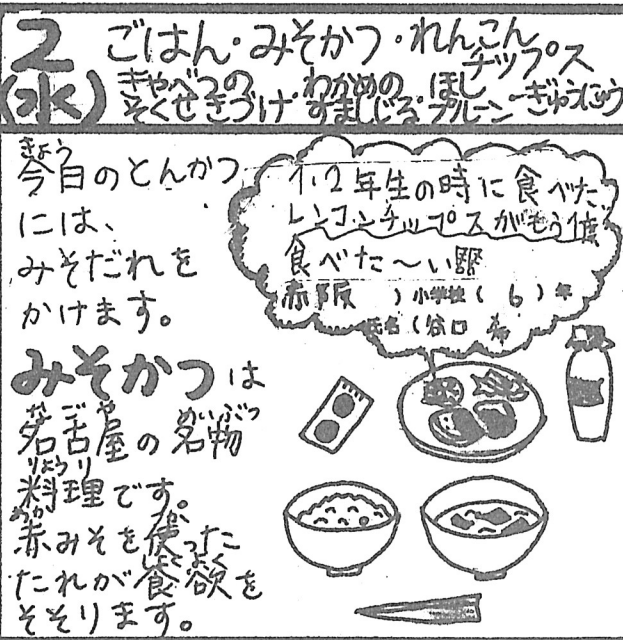 2
(水)
ごはん・みそかつ・れんこんチップス
きゃべつのそくせきづけ・わかめのすましじる・ほしプルーン・ぎゅうにゅう
きょう
今日のとんかつ
には、
みそだれを
かけます。
みそかつは
なごや めいぶつ
名古屋の名物
りょうり
料理です。
あか つか
赤みそを使った
しょくよく
たれが食欲を
そそります。
1、2年生の時に食べた
レンコンチップスがもう1度
食べた〜い
赤阪 )小学校( 6 )年
氏名(谷口